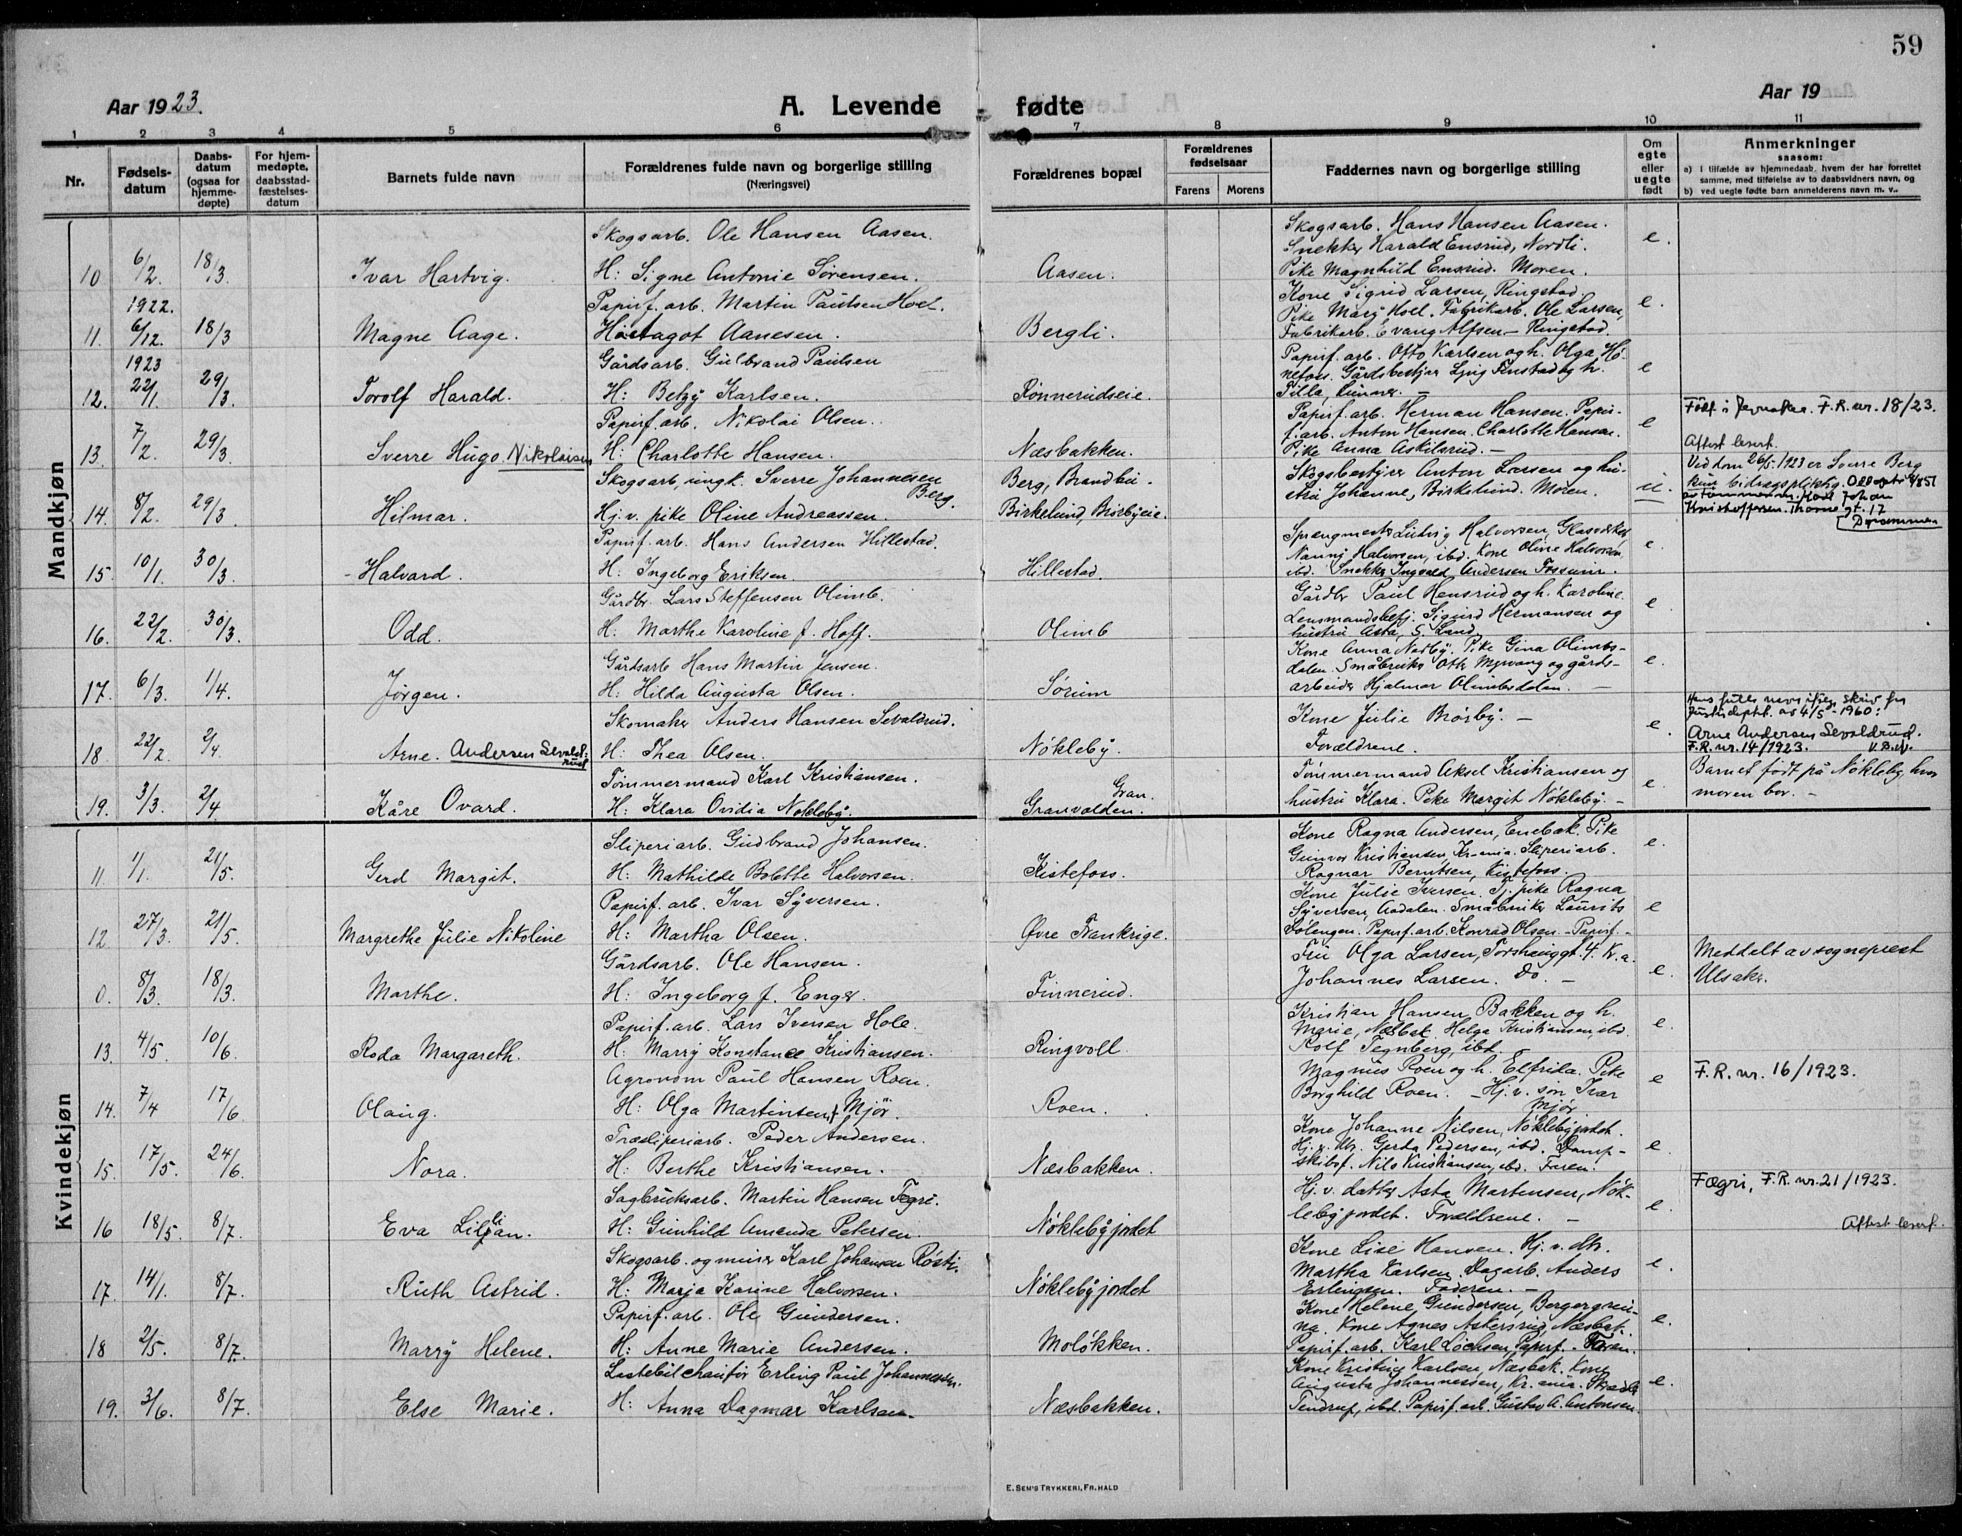 59
Aar 1923.
A. Levende fødte
Aar 19
1 2 3 4 5 6 7 8 9 10 11
Nr.
Fødsels-datum
Daabs-datum (ogsaa for hjemme-døpte)
For hjem-medøpte, daabsstad-fæstelses-datum
Barnets fulde navn
Forældrenes fulde navn og borgerlige stilling
(Næringsvei)
Forældrenes bopæl
Forældrenes fødselsaar
Farens Morens
Faddernes navn og borgerlige stilling
Om egte eller uegte født
Anmerkninger
saasom:
a) I tilfælde av hjemmedaab, hvem der har forrettet samme, med tilføielse av to daabsvidners navn, og
b) ved uegte fødte barn anmelderens navn m. v..
Mandkjøn
Skogsarb. Ole Hansen Aasen.
Skogsarb. Hans Hansen Aasen.
Snekker Harald Ensrud, Nordli.
10 6/2. 18/3. Ivar Hartvig. H: Signe Antonie Sørensen. Aasen. Pike Magnhild Ensrud. Moren. e.
1922. Papirf. arb. Martin Paulsen Hoel.
Kone Sigrid Larsen, Ringstad.
Pike Mary Hoel. Fabrikarb. Ole Larsen,
11. 6/12. 18/3 Magne Aage. Aagot Aanesen. Bergli. Fabrikarb. Evang Alfsen - Ringstad. e.
1923 Gårdsarb. Gulbrand Paulsen
Papirf. arb. Otto Karlsen og h. Olga Hø-
nefoss. Gårdsbestyr
12. 22/1. 29/3. Torolf Harald. H: Betzy Karlsen. Tønnerudseie. e
Papirf. arb. Nikolai Olsen.
Papirf. arb. Herman Hansen. Papir-
f. arb. Anton Hansen. Charlotte Hansen.
Født i Jevnaker. F.R. nr. 18/23.
13. 7/2. 29/3. Sverre Hugo. Nikolaisen H: Charlotte Hansen. Næsbakken. Pike Anna Askilsrud. - e
Attest levert.
Skogsarb., ungk. Sverre Johannesen Berg. Berg, Brandbu.
Skogsbestyrer Anton Larsen og hu-
stru Johanne, Birkelund. Moren. u.
Ved dom 26/5-1923 er Sverre Berg
kun bidragspliktig.
14. 8/2. 29/3. Hilmar. Hj. v. pike Oline Andreassen. Birkelund, Brørbyeie.
Johan
Kristoffersen. gt. 17
Drammen
Papirf. arb. Hans Andersen Hillestad.
Sprængmester Ludvig Halvorsen,
Nanny Halvorsen, ibd. Kone Oline Halvorsen,
15. 10/1. 30/3. Halvard. H: Ingeborg Eriksen. Hillestad. ibd. Snekker Ingvald Andersen Fossum. e.
Gårdbr. Lars Steffensen Olimb.
Gårdbr Paul Hensrud og h. Karoline.
Lensmandsbetj. Sigurd Hermansen og
16. 22/2. 30/3. Odd. H: Marthe Karoline f. Hoff. Olimb hustru Asta, S. Land. e.
Gårdsarb. Hans Martin Jensen.
Kone Anna Nedby. Pike Gina Olimbs-
dalen. Småbruker Oth. Myrvang og gårds-
17. 6/3. 1/4. Jørgen. H: Hilda Augusta Olsen. Sørum arbeider Hjalmar Olimbsdalen. - e.
Skomaker Anders Hansen Sevaldrud.
Kone Julie Brørby. -
Hans fulle navn ifølge skriv fra
Justisdeptet. av 4/5-1960:
18. 22/2. 2/4. Arne. Andersen Sevaldrud H: Thea Olsen. Nøkleby. Forældrene. e.
Arne Andersen Sevaldrud.
F.R. nr. 14/1923.
Tømmermand Karl Kristiansen.
Gran.
Tømmermand Aksel Kristiansen og
Barnet født på Nøkleby, hvor
19. 3/3. 2/4. Kåre Ovard. H: Klara Ovidia Nøkleby. Granvolden. hustru Klara. Pike Margit Nøkleby. - e. moren bor. -
Kvindekjøn
Sliperiarb. Gudbrand Johansen.
Kone Ragna Andersen, Enebak. Pike
Gunvor Kristiansen, Kr-ania. Sliperiarb.
11 1/1. 21/5. Gerd Margit. H: Mathilde Bolette Halvorsen. Kistefoss. Ragnar Berntsen, Kistefoss. e.
Papirf. arb. Ivar Syversen.
Kone Julie Iversen. Tj. pike Ragna
Syversen, Aadalen. Småbruker Laurits
12. 27/3. 21/5. Margrethe Julie Nikoline H: Martha Olsen. Øvre Frankrige. Papirf. arb. Konrad Olsen - Papirf. - e
Gårdsarb. Ole Hansen.
Fru Olga Larsen, Torshauggt. 4. Kr. a.
Meddelt av sogneprest
0. 8/3. 18/3. Marthe. H: Ingeborg f. Enger. Finnerud. Johannes Larsen. Do. - e. Ulsaker.
Papirf. arb. Lars Iversen Hole.
Kristian Hansen Bakken og h.
Marie, Næsbak. Helga Kristiansen, ibd.
13. 4/5. 10/6. Roda Margareth. H: Marry Konstance Kristiansen. Ringvoll. Rolf Tegnberg, ibd. e.
Agronom Paul Hansen Roen.
Magnus Roen og h. Elfrida. Pike
F.R. nr. 16/1923.
14. 7/4 17/6 Olaug. H: Olga Martinsen, f. Mjør. Roen. Borghild Roen. - Hj. v. søn Ivar Mjør e
Træsliperiarb. Peder Andersen.
Kone Johanne Nilsen, Nøklebyjordet.
Hj. v. dtr. Gerda Pedersen, ibd. Damp-
15. 17/5. 24/6. Nora. H: Berthe Kristiansen. Næsbakken. skibsf. Nils Kristiansen, ibd. Faren. e.
Sagbruksarb. Martin Hansen Fegri.
Hj. v. datter Asta Martinsen, Nøk-
Fægri, F.R. nr. 21/1923.
16 18/5. 8/7. Eva Lillian. H: Gunhild Amanda Petersen. Nøklebyjordet lebyjordet. Forældrene. - e.
Attest levert.
Skogsarb. og murer Karl Johansen Røsti.
Kone Lise Hansen. Hj. v. dtr.
Martha Karlsen. Dagarb. Anders
17. 14/1. 8/7. Ruth Astrid. H: Marja Karine Halvorsen. Nøklebyjordet Erlingsen. Faderen. - e.
Papirf. arb. Ole Gundersen.
Kone Helene Gundersen, Bergergrein-
na. Kone Agnes Askersrud, Næsbak.
18 2/5. 8/7. Marry Helene. H: Anne Marie Andersen. Moløkken. Papirf. arb. Karl Lochsen, Papirf. - Faren. e.
Lastebilchaufør Erling Paul Johannessen.
Kone Kristine Karlsen, Næsbak. Kone
Augusta Johannessen, Kr. ania.
19. 3/6. 8/7. Else Marie. H: Anna Dagmar Karlsen. Næsbakken. ibd. Papirf. arb. Gustav A. Antonsen. e.
E. SEM'S TRYKKERI, FR.HALD